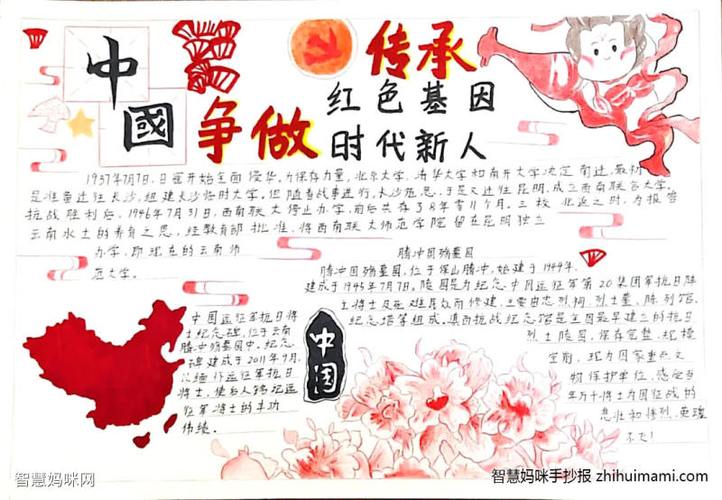 中國
传承
红色基因
争做时代新人
1937年7月7日,日寇开始全面侵华,为保存力量,北京大学、清华大学和南开大学决定南迁,最初
是准备迁往长沙,组建长沙临时大学。但随着战事进行,长沙危急,于是又迁往昆明,成立西南联合大学。
抗战胜利后,1946年7月31日,西南联大停止办学,前后共存了8年零11个月。三校北返之时,为报答
云南水土的养育之恩,经教育部批准,将西南联大师范学院留在昆明独立
办学,即现在的云南师
范大学。
腾冲国殇墓园
腾冲国殇墓园,位于保山腾冲,始建于1944年,
建成于1945年7月7日。陵园是为纪念中国远征军第20集团军抗日阵
亡将士及死难民众而修建,主要由忠烈祠、烈士墓、陈列馆、
纪念塔等组成。滇西抗战纪念馆是全国最早建立的抗日
烈士陵园,保存完整,规模
空前,现为国家重点文
物保护单位,感念当
年万千将士为国征战的
悲壮和惨烈,英魂
不飞!
中国远征军抗日将
士纪念碑,位于云南
腾冲国殇墓园中。纪念
碑建成于2011年9月,
以缅怀远征军抗日
将士,使后人铭记远
征军将士的丰功
伟绩。
中国
智慧妈咪网
智慧妈咪手抄报 zhihuimami.com